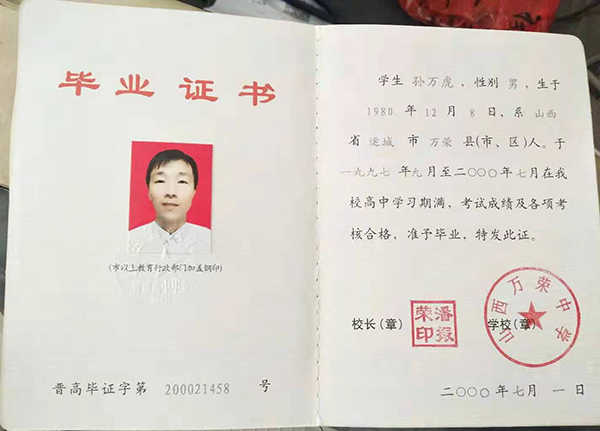 毕业证书
(市以上教育行政部门加盖钢印)
晋高毕证字第 200021458 号
学生 孙万虎 ,性别 男 ,生于
1980 年 12 月 8 日、系 山西
省 运城 市 万荣 县(市、区)人。于
一九九七 年九 月至二〇〇〇 年 七 月在我
校高中学习期满,考试成绩及各项考
核合格,准予毕业,特发此证。
校长(章)
荣潘
印
学校(章)
山西万荣中学
二〇〇〇 年 七 月 一 日